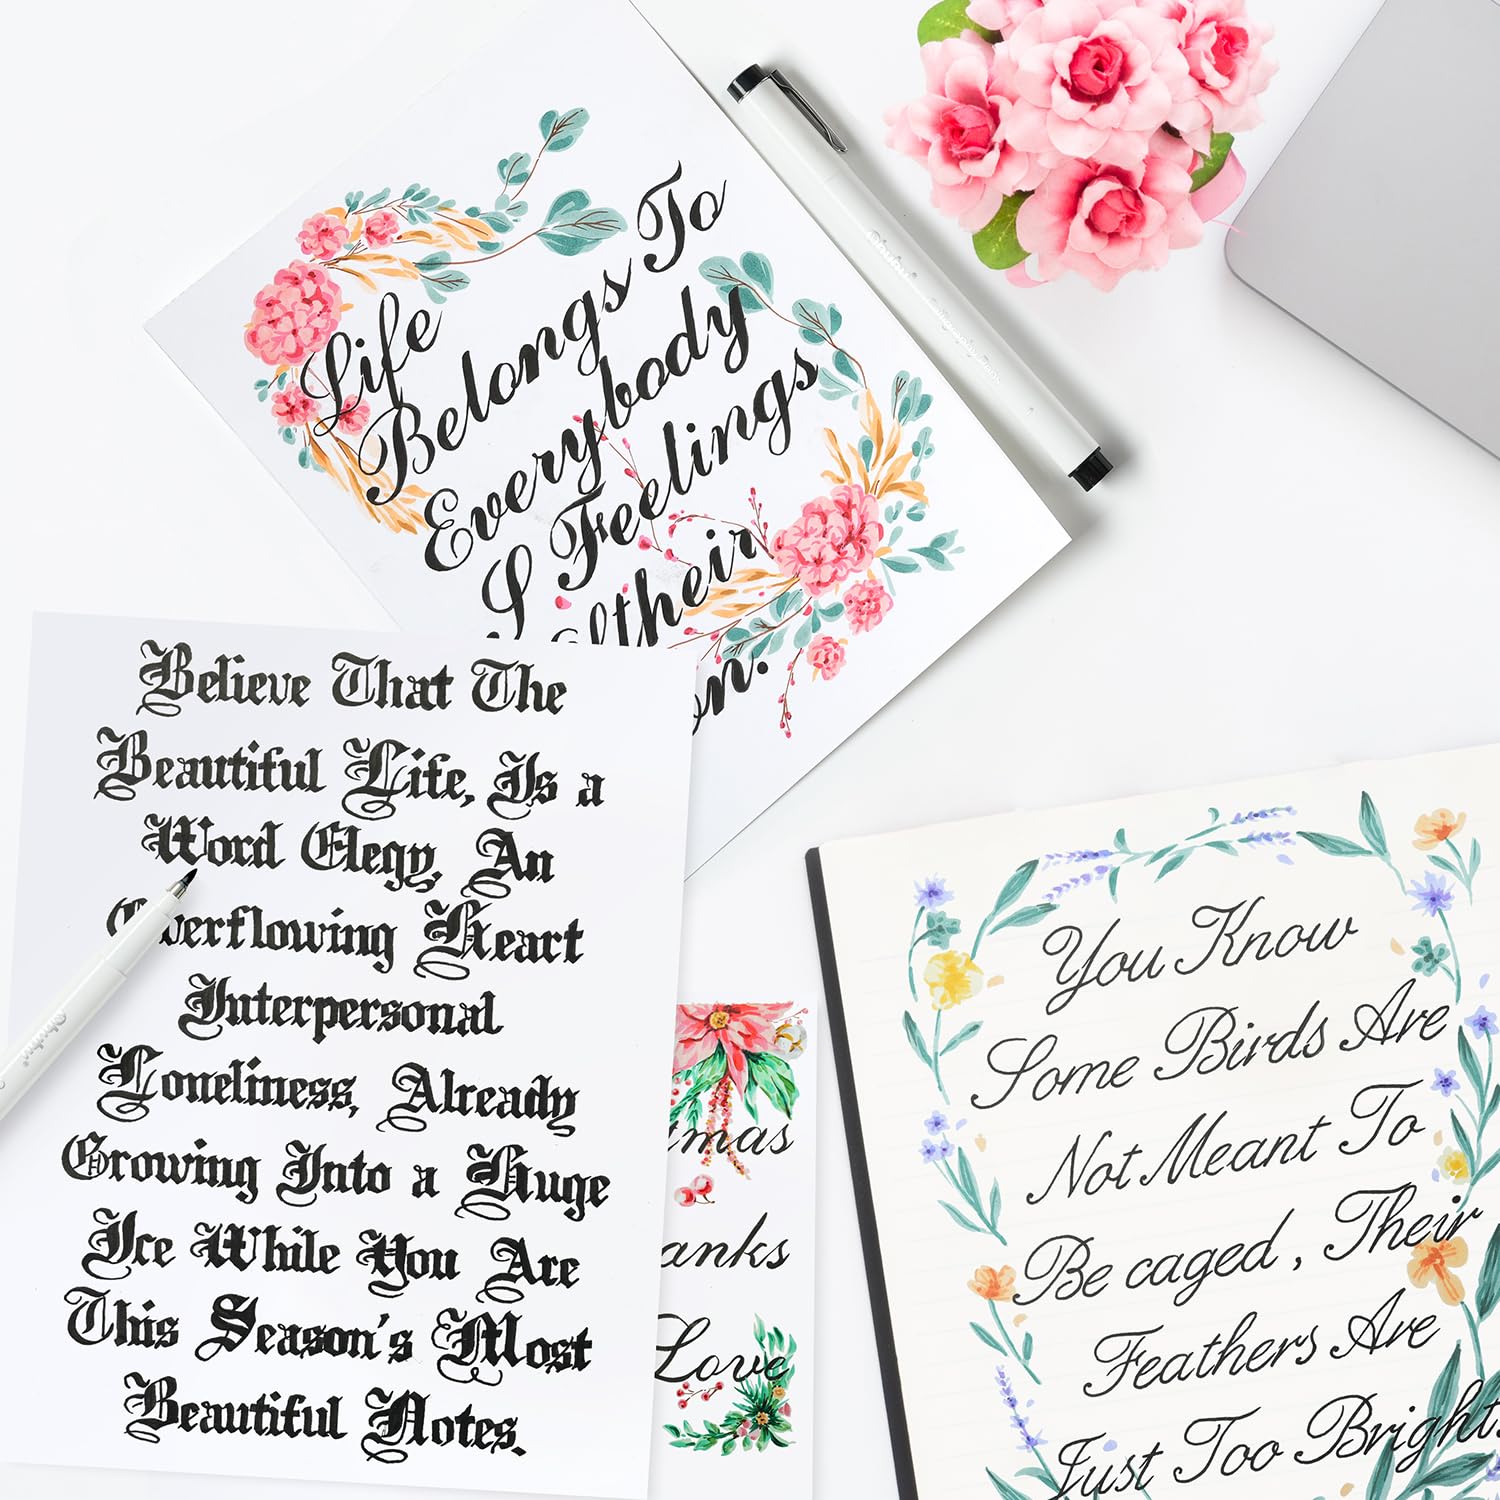 Life
Belongs To
Everybody
Feelings
their
Believe That The
Beautiful Life, Is a
Word Elegy, An
Overflowing Heart
Interpersonal
Loneliness, Already
Growing Into a Huge
Ice While You Are
This Season's Most
Beautiful Notes.
anks
Love
You Know
Some Birds Are
Not Meant To
Be caged, Their
Feathers Are
Just Too Bright.